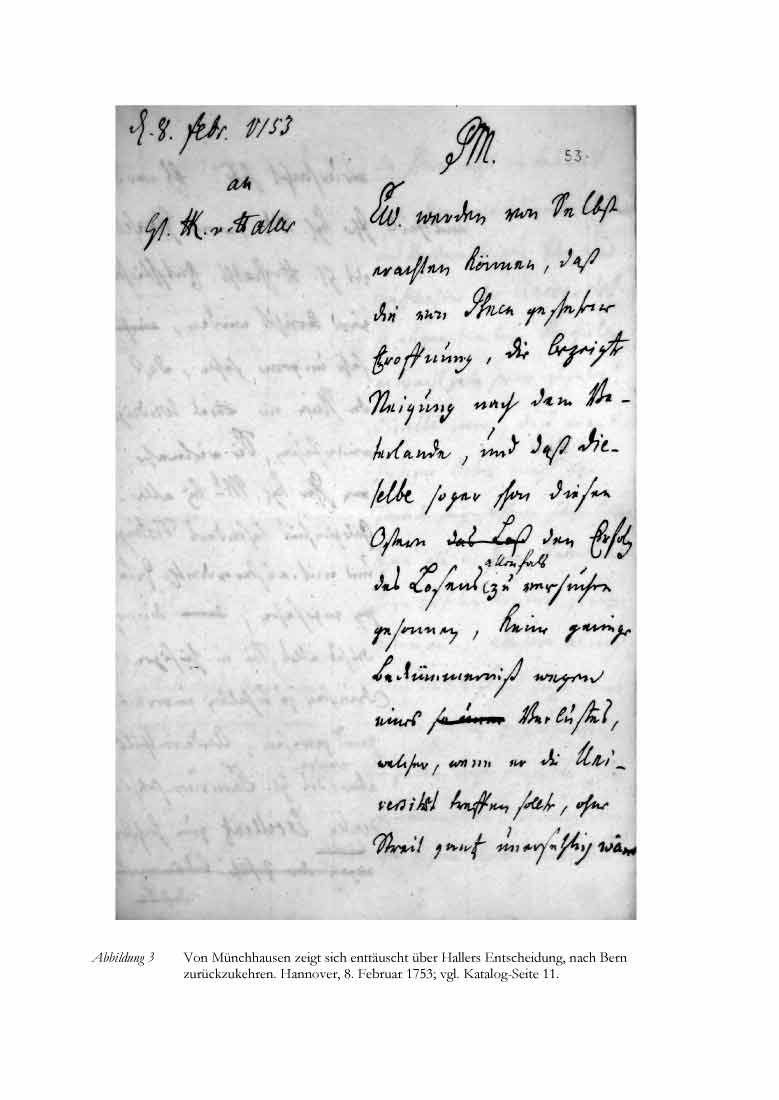 d. 8. febr. 1753
an
H. v. Haller
PM.
53.
Ew. werden von Selbst
erachten können, daß
die von Ihnen geschehene
Eröffnung, die bezeigte
Neigung nach dem Va-
terlande, und daß die-
selbe sogar schon diesen
Ostern das Loß den Erfolg
allenfals
des Losens zu versuchen
gesonnen, keine geringe
Bekümmerniß wegen
eines Verlustes,
welcher, wenn er die Uni-
versität treffen sollte, ohne
Streit gantz unersetzlich wäre
Abbildung 3 Von Münchhausen zeigt sich enttäuscht über Hallers Entscheidung, nach Bern
zurückzukehren. Hannover, 8. Februar 1753; vgl. Katalog-Seite 11.